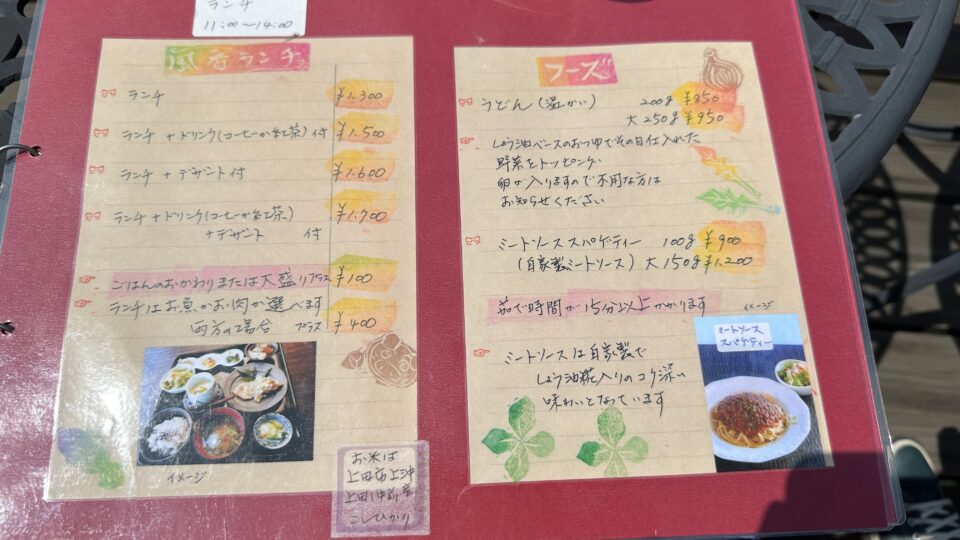 ランチ
11:00～14:00
風香ランチ
ランチ ¥1.300
ランチ＋ドリンク(コーヒーか紅茶)付 ¥1.500
ランチ＋デザート付 ¥1.600
ランチ＋ドリンク(コーヒーか紅茶)
＋デザート 付 ¥1.700
ごはんのおかわりまたは大盛りプラス ¥100
ランチはお魚かお肉か選べます
両方の場合 プラス ¥400
イメージ
お米は
上田市上沖
上田沖産
こしひかり
フーズ
うどん(温かい) 200g ¥850
大 250g ¥950
しょう油ベースのおつゆでその日仕入れた
野菜をトッピング
卵が入りますので不用な方は
お知らせください
ミートソーススパゲティー 100g ¥900
(自家製ミートソース) 大 150g ¥1,200
茹で時間が15分以上かかります
イメージ
ミートソース
スパゲティー
ミートソースは自家製で
しょう油糀入りのコク深い
味わいとなっています